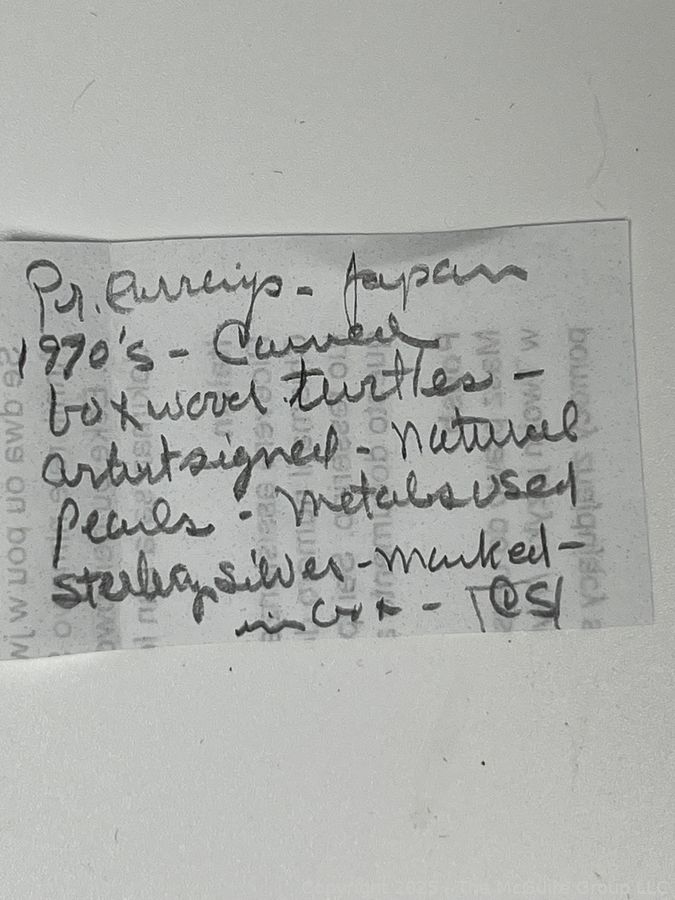 Pr. Earrings - Japan
1970's - Carved
boxwood turtles -
artist signed - natural
pearls - metals used
sterling silver - marked -
in box - 
Copyright 2025 - The McGuire Group LLC